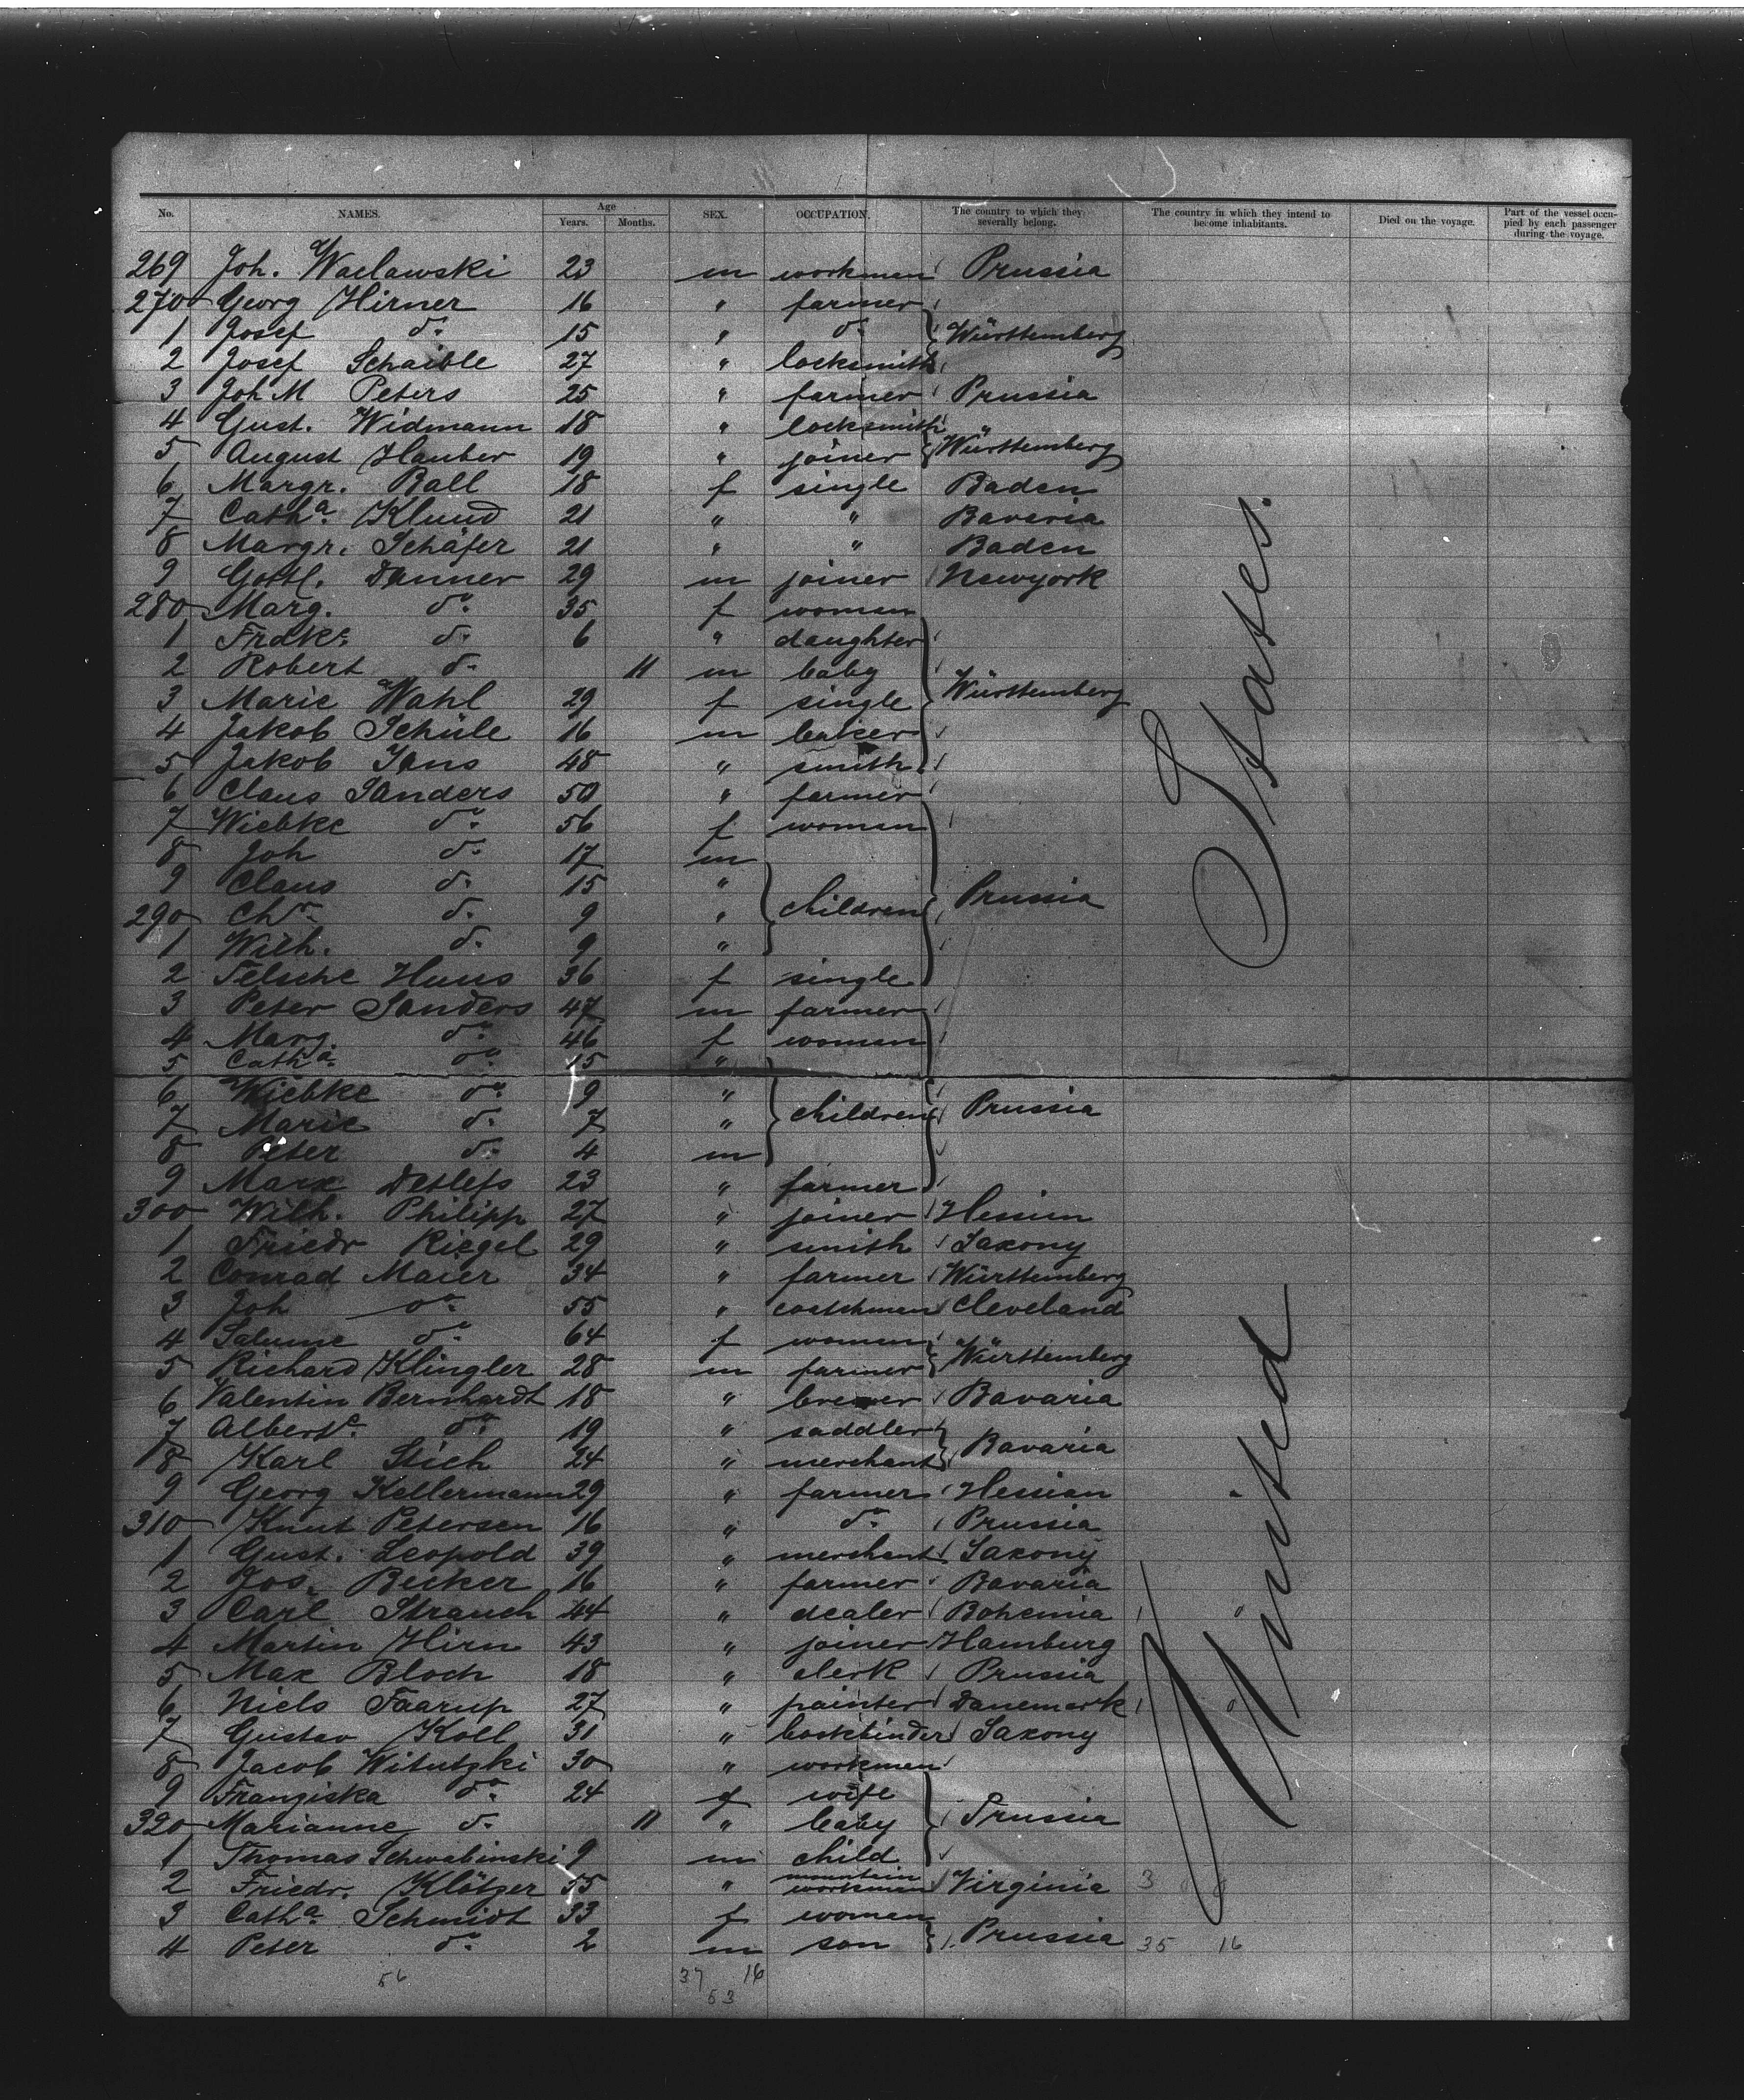 No. NAMES. Age Years. Months. SEX. OCCUPATION. The country to which they severally belong. The country in which they intend to become inhabitants. Died on the voyage. Part of the vessel occupied by each passenger during the voyage.
269 Joh. Waclawski 23 m workman Prussia
270 Georg Hirner 16 " farmer
1 Josef do. 15 " do. Württemberg
2 Josef Schaible 27 " locksmith
3 Joh M Peters 25 " farmer Prussia
4 Gust. Widmann 18 " locksmith
5 August Hauber 19 " joiner Württemberg
6 Margr. Ball 18 f single Baden
7 Catha. Klund 21 " " Bavaria
8 Margr. Schäfer 21 " " Baden
9 Gottl. Danner 29 m joiner Newyork
280 Marg. do. 35 f woman
1 Frdke. do. 6 " daughter
2 Robert do. 11 m baby
3 Marie Wahl 29 f single Württemberg
4 Jakob Schüle 16 m baker
5 Jakob Jans 48 " smith
6 Claus Sanders 50 " farmer
7 Wiebke do. 56 f woman
8 Joh do. 17 m
9 Claus do. 15 "
290 Chr. do. 9 " children Prussia
1 Wilh. do. 9 "
2 Telsche Huus 36 f single
3 Peter Sanders 47 m farmer
4 Marg. do. 46 f woman
5 Catha. do. 15 "
6 Wiebke do. 9 "
7 Marie do. 7 " children Prussia
8 Peter do. 4 m
9 Marx Detlefs 23 " farmer
300 Wilh. Philipp 27 " joiner Hessian
1 Friedr Riegel 29 " smith Saxony
2 Conrad Maier 34 " farmer Württemberg
3 Joh do. 55 " coatchman Cleveland
4 Salume do. 64 f woman
5 Richard Klingler 28 m farmer Württemberg
6 Valentin Bernhardt 18 " brewer Bavaria
7 Alberte. do. 19 " saddler
8 Karl Stich 24 " merchant Bavaria
9 Georg Kellermann 29 " farmer Hessian
310 Knut Petersen 16 " do. Prussia
1 Gust. Leopold 39 " merchant Saxony
2 Jos. Becker 16 " farmer Bavaria
3 Carl Strauch 44 " dealer Bohemia
4 Martin Hirn 43 " joiner Hamburg
5 Max Bloch 18 " clerk Prussia
6 Niels Taarup 27 " painter Danemark
7 Gustav Koll 31 " bookbinder Saxony
8 Jacob Witutzki 30 " workman
9 Franziska do. 24 f wife
320 Marianne do. 11 " baby Prussia
1 Thomas Schwabinski 9 m child
2 Friedr. Klötzer 55 " mountain workman Virginia
3 Catha. Schmidt 33 f woman
4 Peter do. 2 m son Prussia 35 16
56 37 16
53
United States.